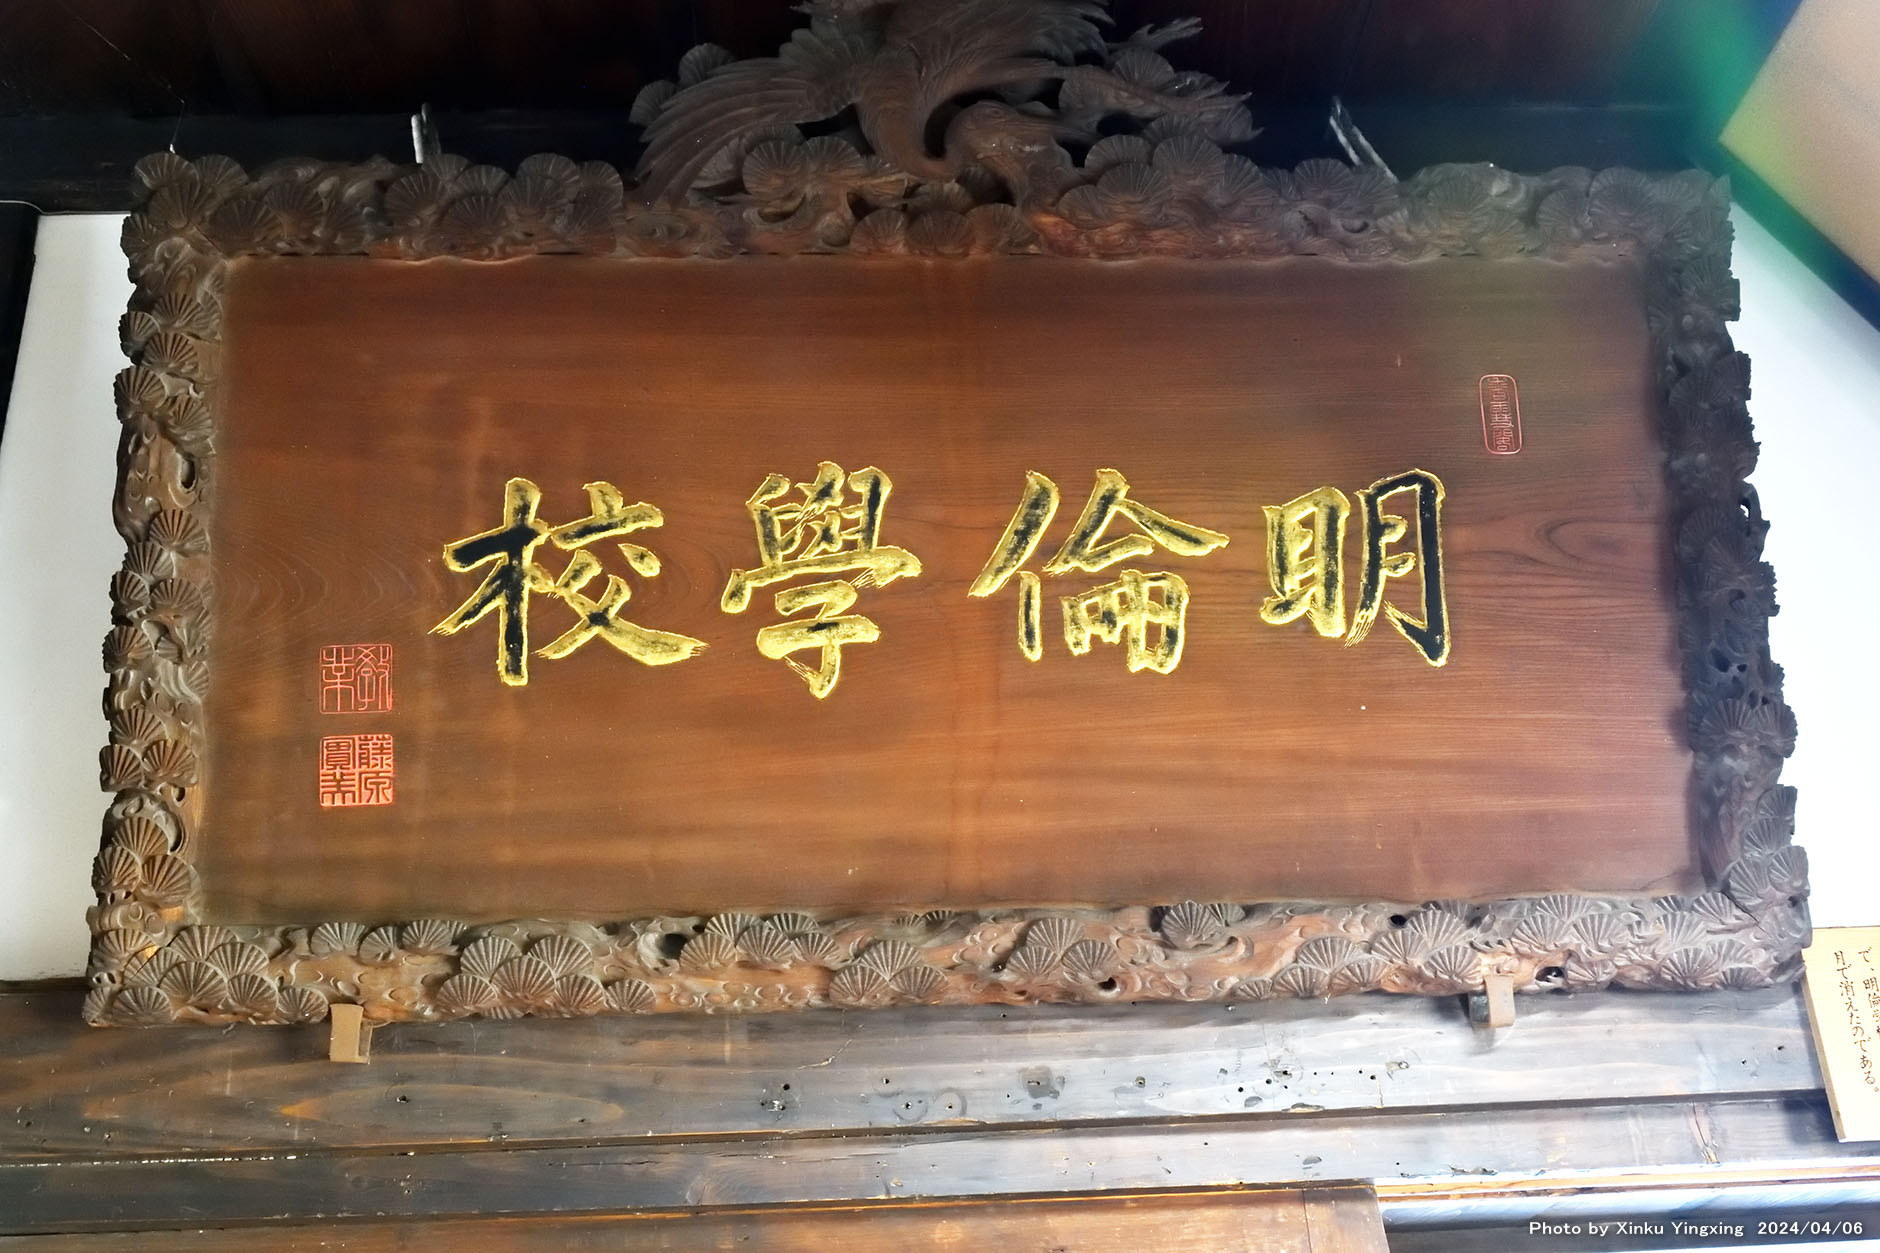 明倫學校
藤原
實業
で、明倫
月で消えたのである。
Photo by Xinku Yingxing 2024/04/06